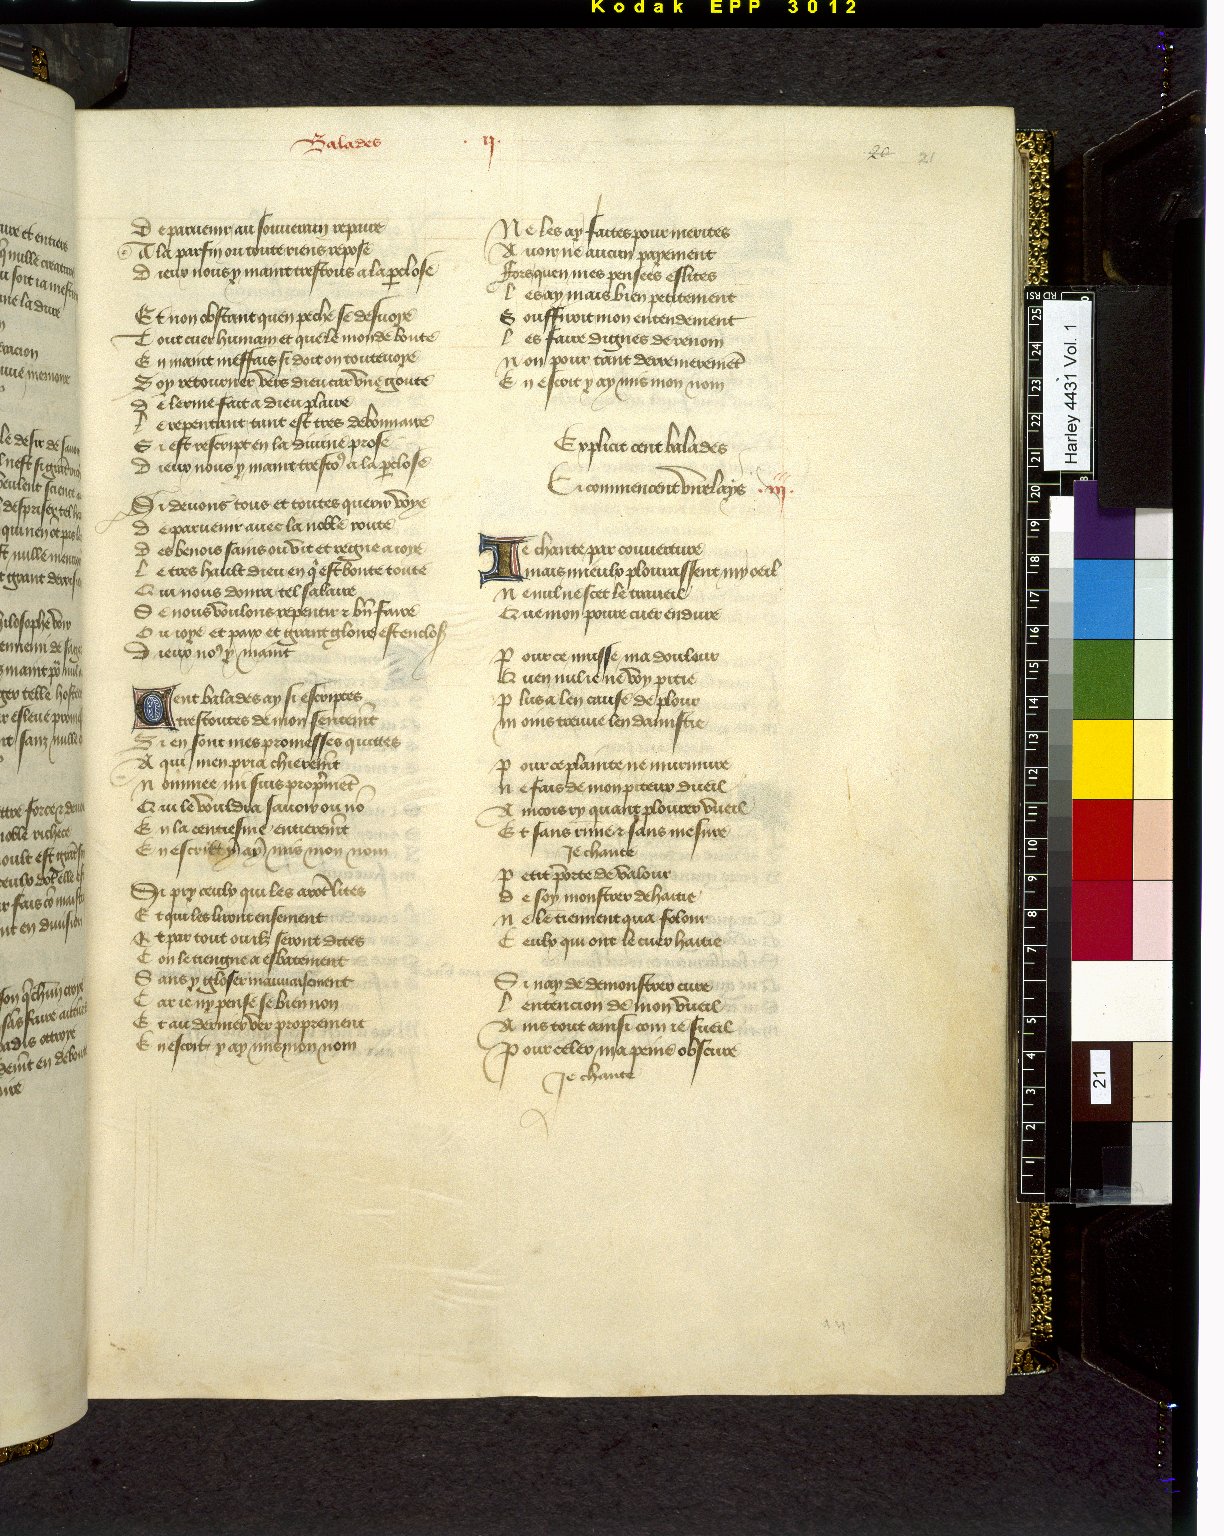 Kodak EPP 3012
Balades .ij.
20 21
De parvenir au souverain repaire
A la parfin ou toute riens repose
Dieux nous y maint trestous a la perclose
Et non obstant quen peche se desvoye
Tout cuer humain et que le monde boute
En maint meffais si doit on toutevoye
Soy retourner vers dieu car une goute
De lerme fait a dieu plaire
Le repentant tant est tres debonnaire
Si est rescript en la divine prose
Dieux nous y maint trestos a la perclose
Si devons tous et toutes querir voye
De parvenir avec la noble route
Des benois sains ou vit et regne a joye
Le tres hault dieu en qi est bonte toute
Qui nous donra tel salaire
Se nous voulons repentir et bn faire
Ou joye et paix et grant gloire est enclose
Dieux nos y maint
Cent balades ay si escriptes
Trestoutes de mon sentemt
Si en sont mes promesses quittes
A qui men pria chieremt
Nommee mi suis proprmet
Qui le vouldra savoir ou no
En la centiesme entieremt
En escrit y ay mis mon nom
Si pry ceulx qui les aront lites
Et qui les liront ensement
Et par tout ou ilz seront dites
Con le tiengne a esbatement
Sans y gloser mauvaisement
Car je ny pense se bien non
Et au dernier ver proprement
En escrit y ay mis mon nom
Ne les ay faites pour merites
Avoir ne aucun payement
Fors quen mes pensees eslites
Les ay mais bien petitement
Souffiroit mon entendement
Les faire dignes de renom
Non pour tant derrenieremet
En escrit y ay mis mon nom
Explicit cent balades
Ci commencent virelays .iij.
Je chante par couverture
mais mieulx plourassent my oeil
Ne nul ne scet le traveil
Que mon povre cuer endure
Pour ce musse ma doulour
Quen nul je ne voy pitie
Plus a len cause de plour
Moins treuve len damistie
Pour ce plainte ne murmure
Ne fais de mon piteux dueil
Aincois ry quant plourer vueil
Et sans rime et sans mesure
Je chante
Petit porte de valour
De soy monstrer dehaitie
Ne le tiennent qua folour
Ceulx qui ont le cuer haitie
Si nay de demonstrer cure
Lentencion de mon vueil
Ains tout ainsi com je sueil
Pour celer ma peine obscure
Je chante
Harley 4431 Vol. 1
21
25
24
23
22
21
20
19
18
17
16
15
14
13
12
11
10
9
8
7
6
5
4
3
2
1